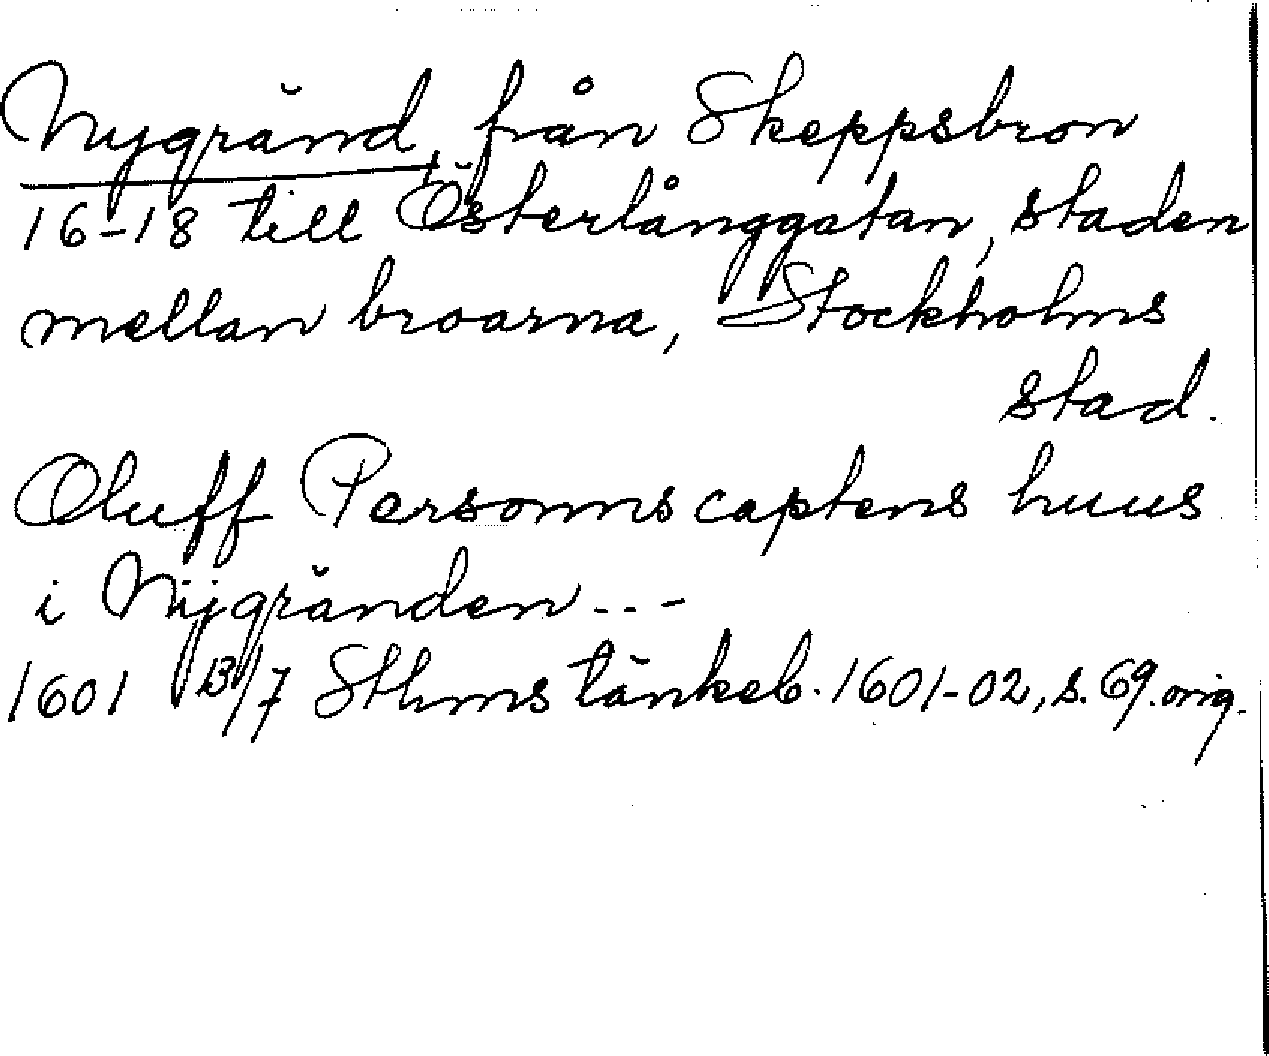 Nygränd, från Skeppsbron
16-18 till Österlånggatan, staden
mellan broarna, Stockholms
stad.
Oluff Personns captens huus
i Nijgränden---
1601 13/7 Sthms tänkeb. 1601-02, s. 69. orig.